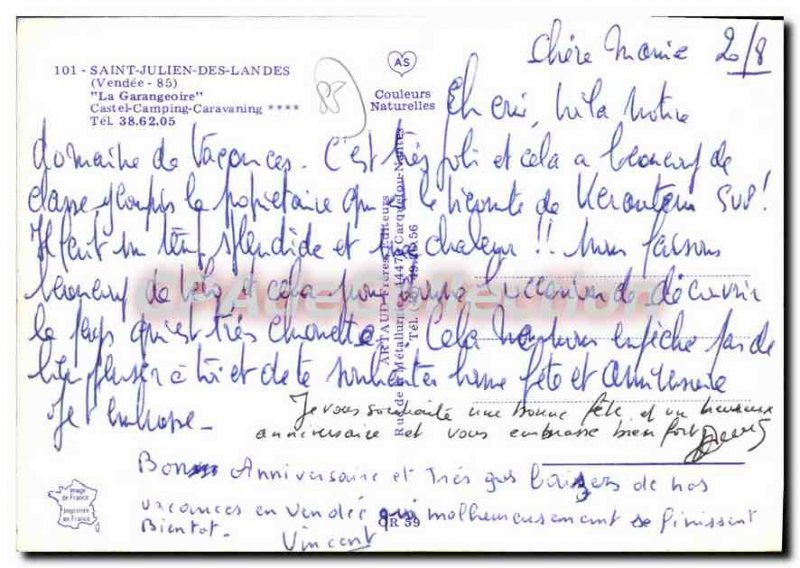 101 - SAINT-JULIEN-DES-LANDES
(Vendée - 85)
"La Garangeoire"
Castel-Camping-Caravaning ****
Tél. 38.62.05
85
AS
Couleurs
Naturelles
ARTAUD Frères, Editeurs
Rue de la Métallurgie - 44470 Carquefou-Nantes
Chère Mamie 20/8
Eh oui, voilà notre
domaine de vacances. C'est très joli et cela a beaucoup de
classe, y compris le propriétaire qui est le vicomte de SVP!
Il fait un temps splendide et une chaleur !! Nous faisons
beaucoup de vélo et cela nous donne l'occasion de découvrir
le pays qui est très chouette. Cela n'empêche pas de
bien penser à toi et de te souhaiter bonne fête et anniversaire
Je t'embrasse -
Je vous souhaite une bonne fête et un heureux
anniversaire et vous embrasse bien fort
Bon Anniversaire et très gros baisers de nos
vacances en Vendée qui malheureusement se finissent
Bientot.
Vincent
CR 59
Image
de France
Imprimée
en France
CPA Collection